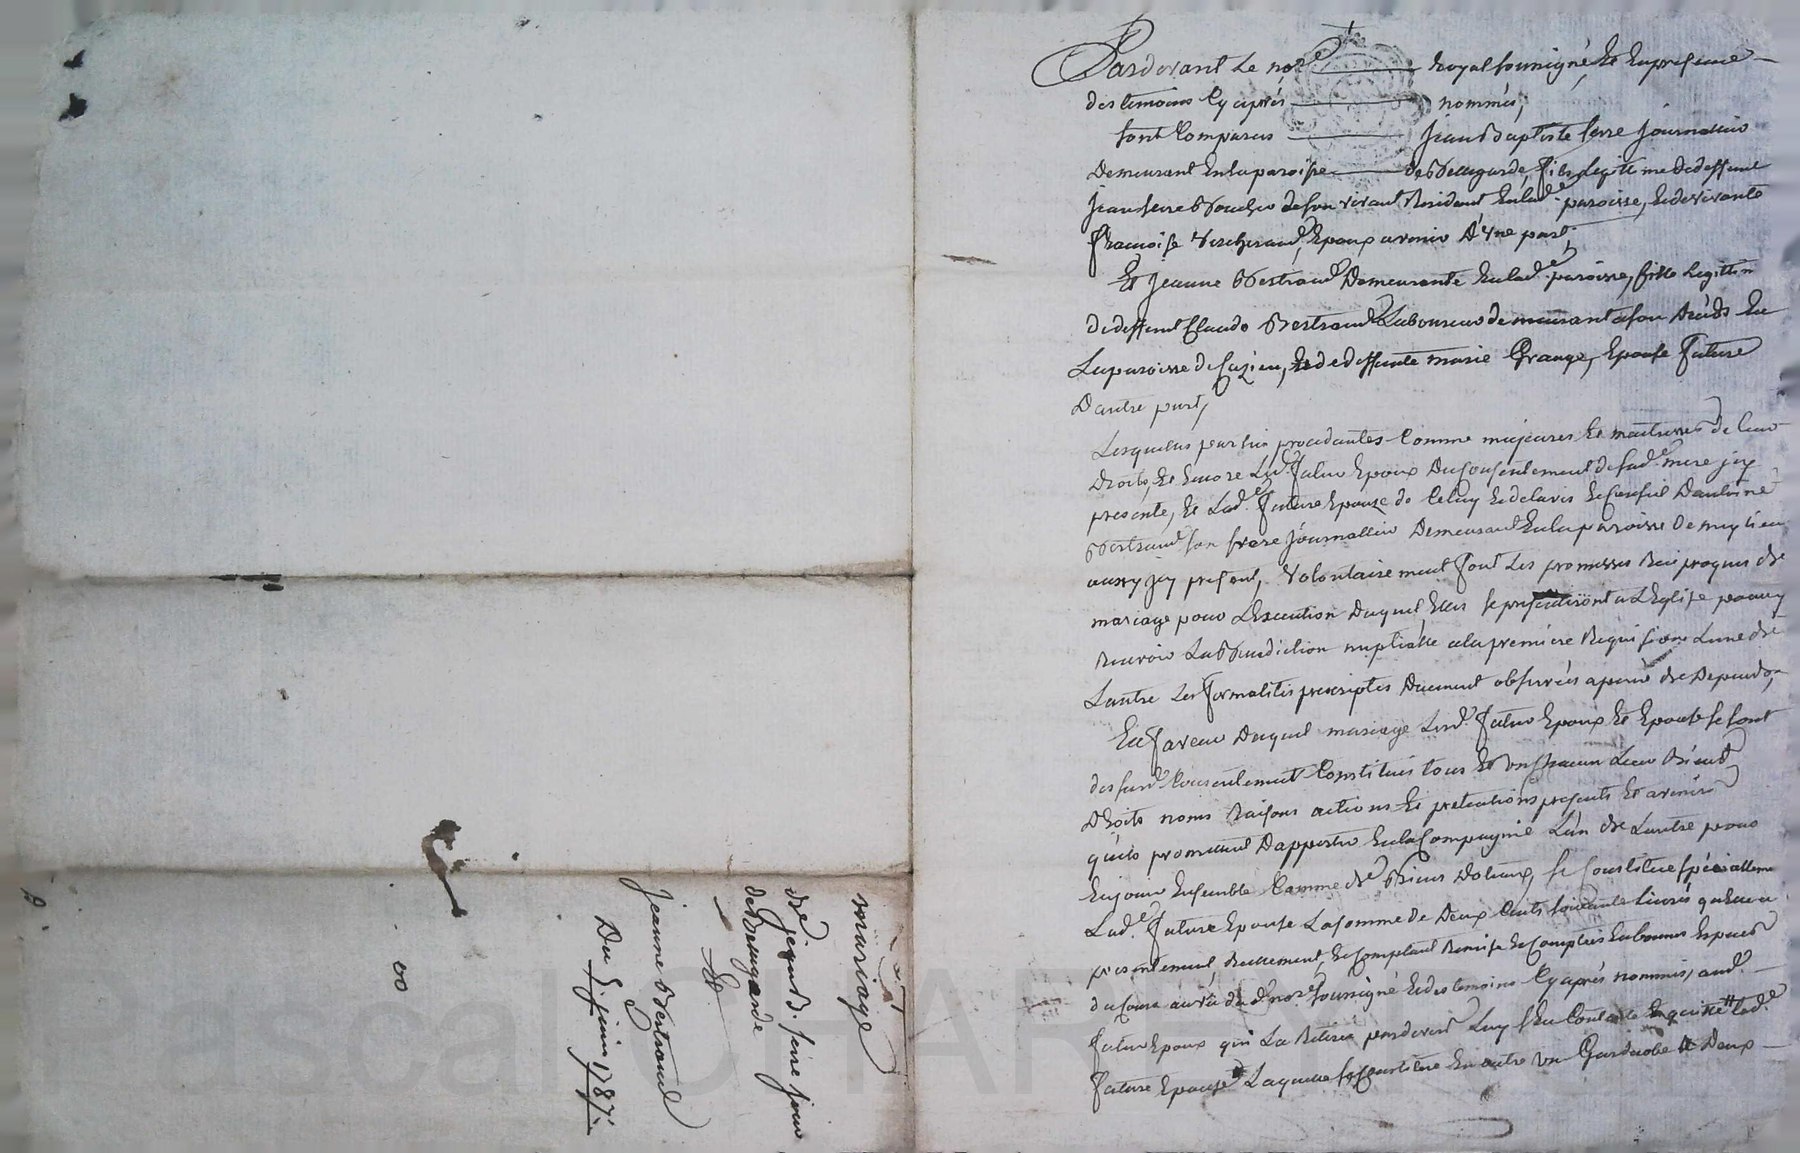 Pardevant Le nore Royal soussigné, Et En presence
des temoins Cy après nommés,
sont Comparus Jean Baptiste serre journallier
Demeurant En la paroisse de Beaugarde, fils legitime de deffunt
Jean serre de son vivant Resident En lade paroisse, Et de vivante
françoise Epoux avenir D'Une part,
Et Jeanne Bertrand Demeurante En lade paroisse, fille Legittim
de deffunt Claude Bertrand Laboureur demeurant a son decéds En
La paroisse de Et de deffunte marie Grange, Epouse future
D'autre part,
Lesquelles parties procedantes Comme majeures Et maitresses de Leur
Droits, Et Encore Led. futur Epoux Du Consentement de sade mere jcy
presente, Et Lade future Epouze de Celuy Et de lavis Et Conseil D'antoine
Bertrand son frere journallier Demeurant En la paroisse De
aussy jcy present, Volontairement font Les promesses Reciproques de
mariage pour L'Execution Duquel Elles se presenteront a L'Eglise pour y
Recevoir La Benediction nuptialle a la premiere Requisition L'une de
L'autre Les formalités prescriptes Duement observées a peine de Depends,
En faveur Duquel mariage Lesd. futur Epoux Et Epouse se sont
des susd. Consentement Constitués tous Et Un Chacun Leur Biens
Droits noms Raisons actions Et pretentions presents Et avenir
qu'ils promettent D'apporter En la Compagnie L'un de L'autre pour
En jouir Ensemble Comme de Biens Dotaux, se Constitue spécialleme
Lade future Epouse La somme de Deux Cents soixante Livres qu'Elle a
presentement, Reellement, Et Comptant Remise Et Comptées En bonnes Especes
du Cours au vû du d. nore soussigné Et des temoins Cy après nommés, aud.
futur Epoux qui La Retirée pardevers Luy s'En Contente En quitte Lade
future Epouse Laquelle se Constitue En outre Un Garderobe Et Deux
mariage
de jean B. serre jour
de Beaugarde
Et
Jeanne Bertrand
Du 5 juin 1787